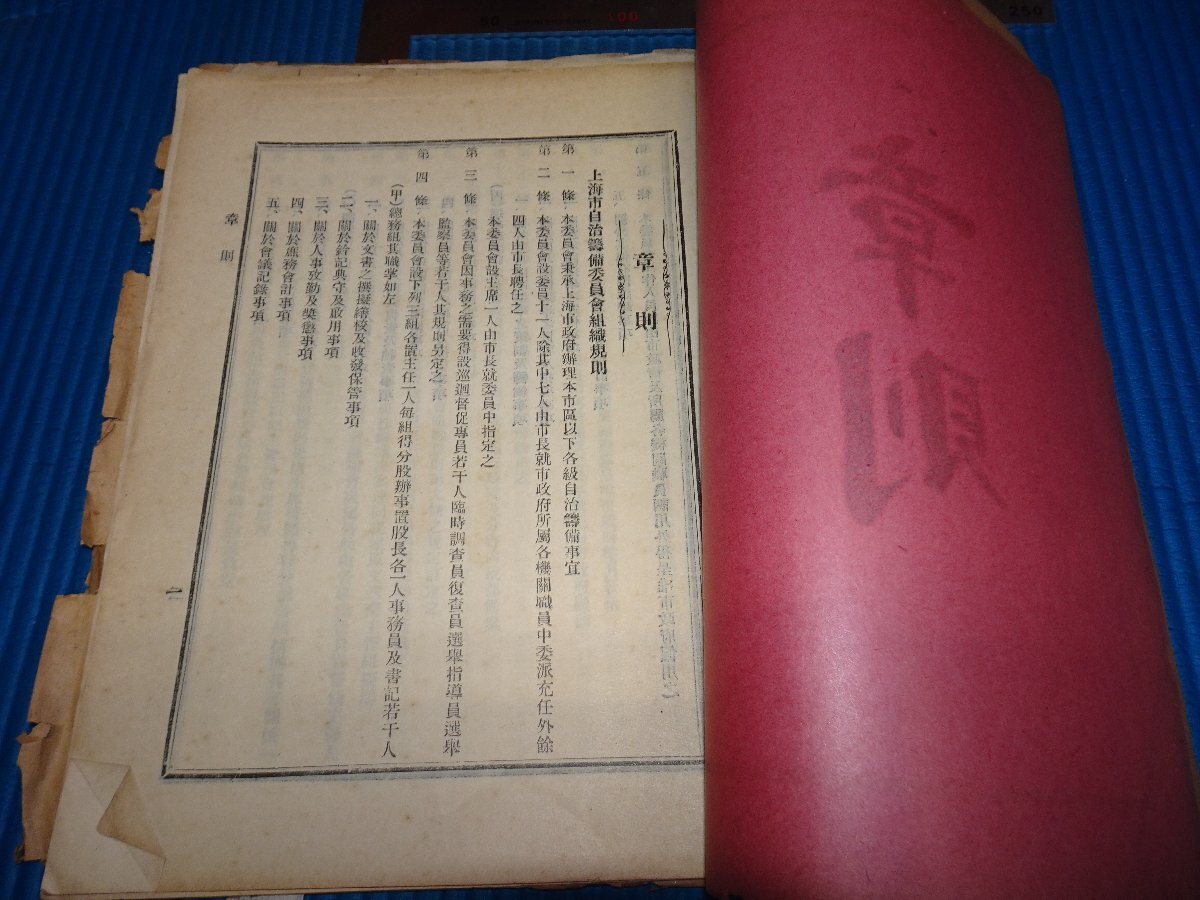 章則
上海市自治籌備委員會組織規則
第一條 本委員會秉承上海市政府辦理本市區以下各級自治籌備事宜
第二條 本委員會設委員十一人除其中七人由市長就市政府所屬各機關職員中委派充任外餘
四人由市長聘任之
本委員會設主席一人由市長就委員中指定之
第三條 本委員會因事務之需要得設巡迴督促專員若干人臨時調查員復查員選舉指導員選舉
監察員等若干人其規則另定之
第四條 本委員會設下列三組各置主任一人每組得分股辦事置股長各一人事務員及書記若干人
(甲)總務組其職掌如左
一、關於文書之撰擬繕校及收發保管事項
二、關於鈐記典守及啟用事項
三、關於人事攷勤及奬懲事項
四、關於庶務會計事項
五、關於會議記錄事項
章則
一
章則
50
100
250